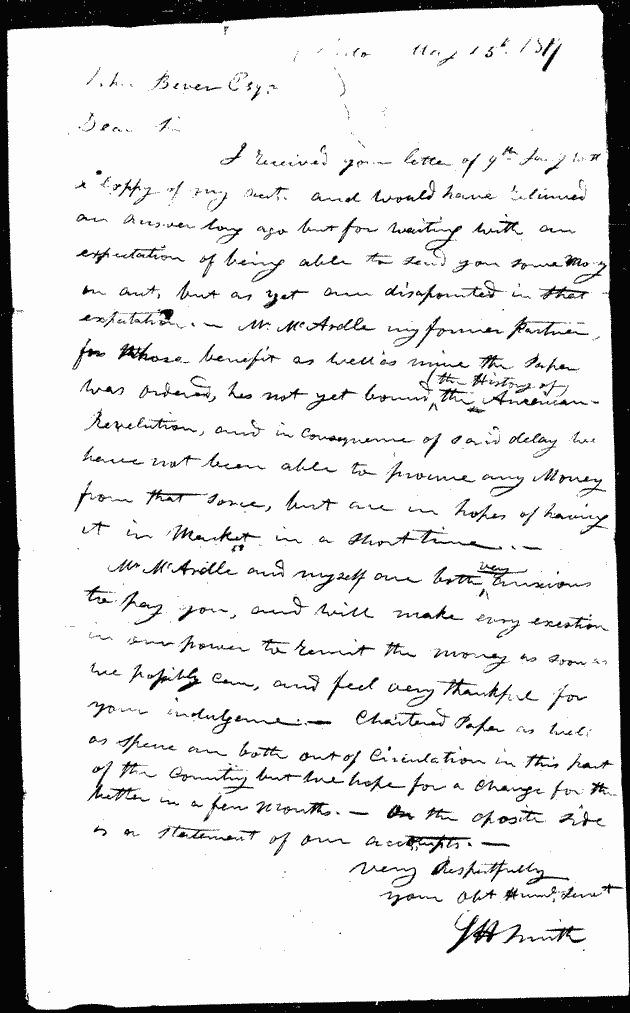 May 15th. 1819
John Bever Esqr.
Dear Sir
I received your letter of 9th Jany with
a Coppy of my act. and would have returned
an answer long ago but for waiting with an
expectation of being able to send you some Mony
on act. but as yet am disapointed in that
expectation. — Mr. McArdle my former Partner,
for Whose benefit as well as mine the Paper
(the History of)
was ordered, hes not yet bound the American
Revelution, and in consequence of said delay we
have not been able to procure any Money
from that sorce, but are in hopes of having
it in Market in a short time. —
Mr McArdle and myself are both very anxious
to pay you, and will make evry exestion
in our power to remit the money as soon as
we possibly can, and feel very thankful for
your indulgence. — Chartered Paper as well
as specie are both out of Circulation in this part
of the Country but we hope for a change for the
better in a few Months. — On the oposite side
is a statement of our accounts. —
very Respectfully
your Obt Humb. Servt
Smith